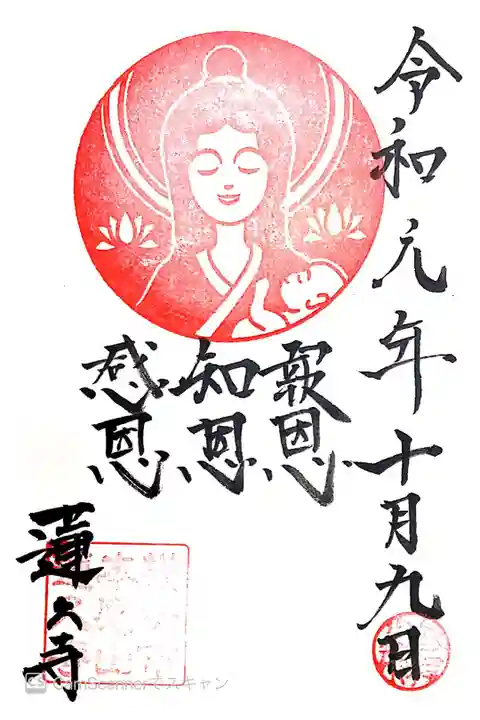 令和元年十月九日
報恩
知恩
感恩
蓮久寺
CS CamScannerでスキャン